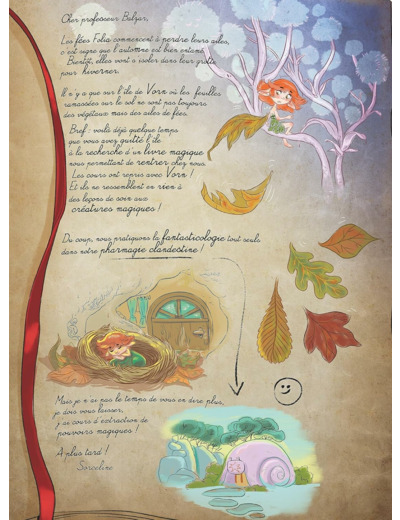 Cher professeur Balzar,
Les fées Folia commencent à perdre leurs ailes,
c'est signe que l'automne est bien entamé.
Bientôt, elles vont s'isoler dans leur grotte
pour hiverner.
Il n'y a que sur l'île de Vorn où les feuilles
ramassées sur le sol ne sont pas toujours
des végétaux mais des ailes de fées.
Bref : voilà déjà quelque temps
que vous avez quitté l'île
à la recherche d'un livre magique
nous permettant de rentrer chez nous.
Les cours ont repris avec Vorn !
Et ils ne ressemblent en rien à
des leçons de soin aux
créatures magiques !
Du coup, nous pratiquons la fantasticologie tout seuls
dans notre pharmacie clandestine !
Mais je n'ai pas le temps de vous en dire plus,
je dois vous laisser,
j'ai cours d'extraction de
pouvoirs magiques !
A plus tard !
Sorceline